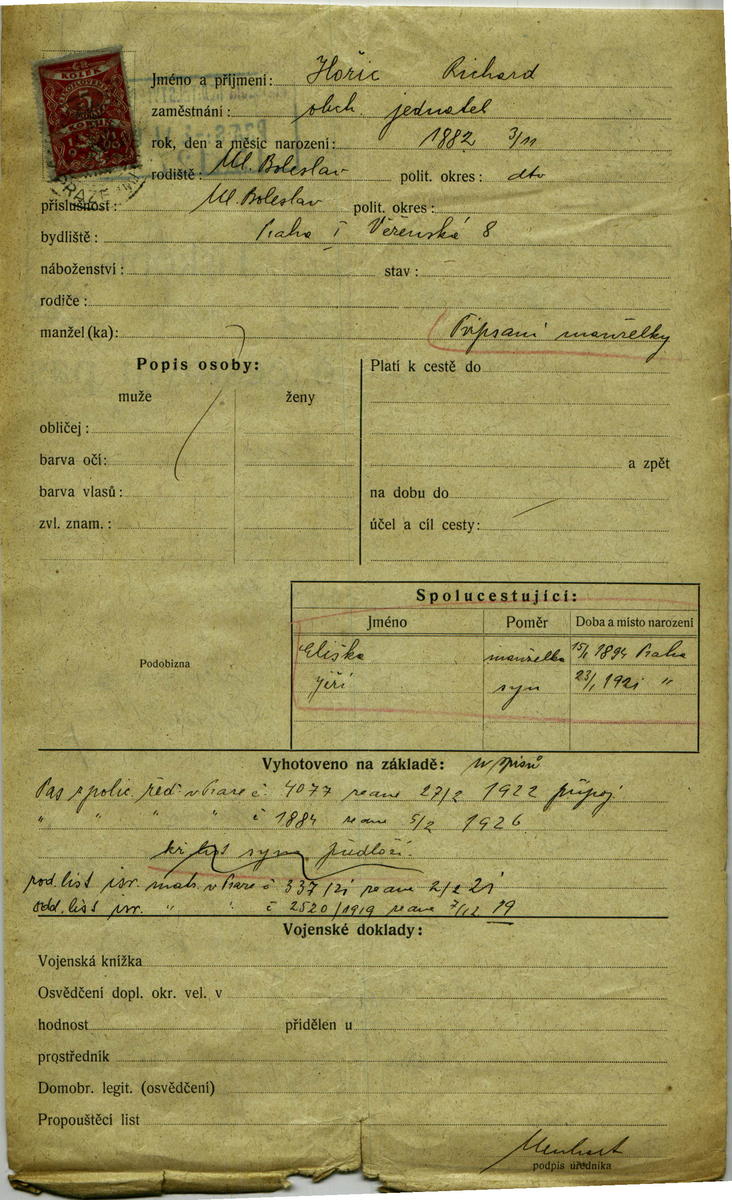 KOLEK
5
Jméno a příjmení: Hořic Richard
zaměstnání: obch. jednatel
rok, den a měsíc narození: 1882 3/11
rodiště: Ml. Boleslav polit. okres: dto
příslušnost: Ml. Boleslav polit. okres:
bydliště: Praha I 8
náboženství: stav:
rodiče:
manžel (ka): Připsání manželky
Popis osoby:
muže ženy
obličej:
barva očí:
barva vlasů:
zvl. znam.:
Platí k cestě do
a zpět
na dobu do
účel a cíl cesty:
Podobizna
Spolucestující:
Jméno Poměr Doba a místo narození
Eliška manželka 1894 Praha
Jiří syn 23/1 1921 "
Vyhotoveno na základě:
Pas z polic. řed. v Praze č 4077 ze dne 27/2 1922 připoj
" " " " č 1884 ze dne 5/2 1926
syna předloží.
rod. list isr. matr. v Praze č 337/21 ze dne 2/2 21
odd. list isr. " " č 2520/1919 ze dne 7/12 19
Vojenské doklady:
Vojenská knížka
Osvědčení dopl. okr. vel. v
hodnost přidělen u
prostředník
Domobr. legit. (osvědčení)
Propouštěcí list
podpis úředníka